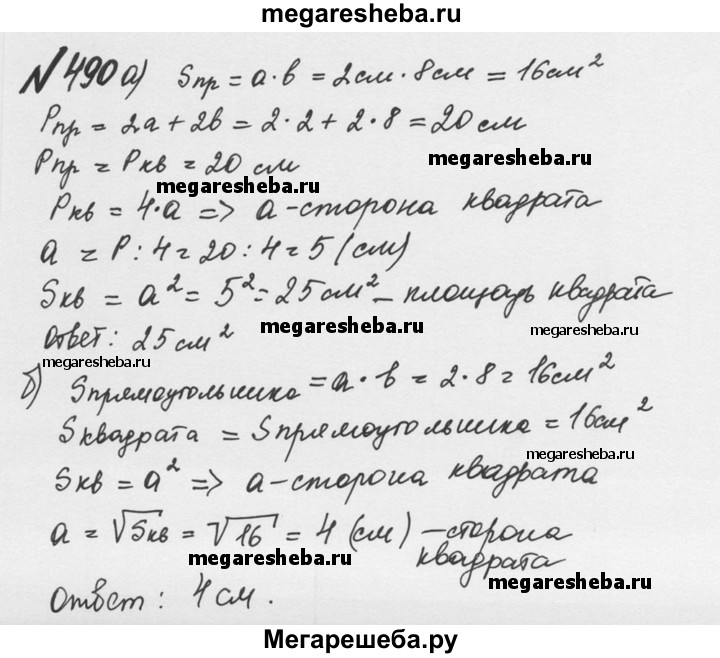 megaresheba.ru
№490 а) Sпр = a · b = 2см · 8см = 16см²
Pпр = 2a + 2b = 2 · 2 + 2 · 8 = 20 см
megaresheba.ru
Pпр = Pкв = 20 см
megaresheba.ru
Pкв = 4·a => a - сторона квадрата
a = P : 4 = 20 : 4 = 5 (см)
Sкв = a² = 5² = 25 см² - площадь квадрата
Ответ: 25 см²
megaresheba.ru
megaresheba.ru
megaresheba.ru
б) Sпрямоугольника = a · b = 2 · 8 = 16см²
Sквадрата = Sпрямоугольника = 16см²
megaresheba.ru
Sкв = a² => a - сторона квадрата
a = √Sкв = √16 = 4 (см) - сторона
квадрата
megaresheba.ru
megaresheba.ru
Ответ: 4 см.
Мегарешеба.ру